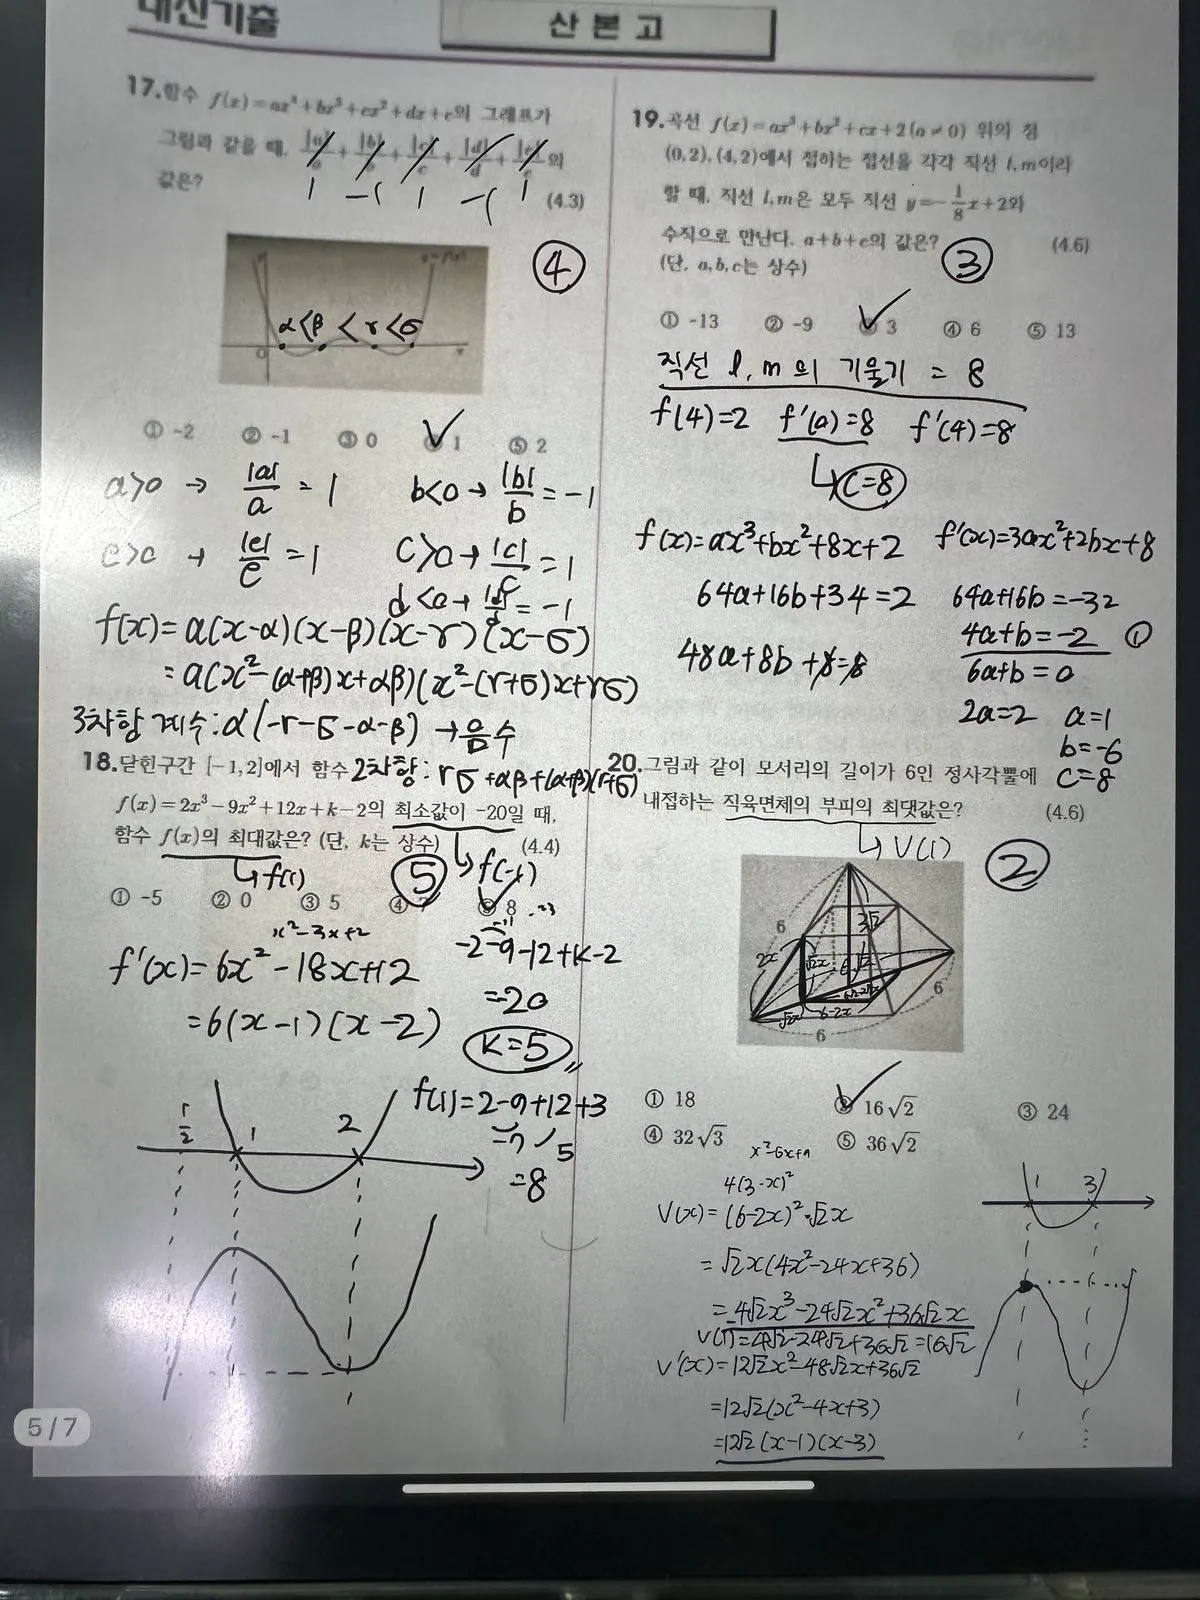 내신기출
산본고
17. 함수 f(x)=ax⁴+bx³+cx²+dx+e의 그래프가
그림과 같을 때, |a|/a + |b|/b + |c|/c + |d|/d + |e|/e의
값은? (4.3)
1 -1 1 -1 1
④
y=f(x)
α<β<r<σ
O x
① -2 ② -1 ③ 0 ✓ 1 ⑤ 2
a>0 → |a|/a = 1 b<0 → |b|/b = -1
e>0 → |e|/e = 1 c>0 → |c|/c = 1
d<0 → |d|/d = -1
f(x)=a(x-α)(x-β)(x-r)(x-σ)
=a(x²-(α+β)x+αβ)(x²-(r+σ)x+rσ)
3차항 계수: a(-r-σ-α-β) → 음수
2차항: rσ+αβ+(α+β)(r+σ)
18. 닫힌구간 [-1, 2]에서 함수
f(x)=2x³-9x²+12x+k-2의 최소값이 -20일 때,
함수 f(x)의 최대값은? (단, k는 상수) (4.4)
↳f(1) ⑤ ↳f(-1)
① -5 ② 0 ③ 5 ④ 7 ✓ 8
x²-3x+2
f'(x)=6x²-18x+12
=6(x-1)(x-2)
-2-9-12+k-2
=-20
k=5
f(1)=2-9+12+3
-7 5
=8
1/2 1 2
19. 곡선 f(x)=ax³+bx²+cx+2(a≠0) 위의 점
(0,2), (4,2)에서 접하는 접선을 각각 직선 l, m이라
할 때, 직선 l, m은 모두 직선 y=-1/8x+2와
수직으로 만난다. a+b+c의 값은? (4.6)
(단, a, b, c는 상수) ③
① -13 ② -9 ✓ 3 ④ 6 ⑤ 13
직선 l, m의 기울기 = 8
f(4)=2 f'(0)=8 f'(4)=8
↳c=8
f(x)=ax³+bx²+8x+2 f'(x)=3ax²+2bx+8
64a+16b+34=2 64a+16b=-32
4a+b=-2 ①
48a+8b+8=8 6a+b=0
2a=2 a=1
b=-6
c=8
20. 그림과 같이 모서리의 길이가 6인 정사각뿔에
내접하는 직육면체의 부피의 최댓값은? (4.6)
↳V(1) ②
6 3√2
2x √2x
6
√2x 6-2x
6
① 18 ✓ 16√2 ③ 24
④ 32√3 ⑤ 36√2
x²-6x+9
4(3-x)²
V(x)=(6-2x)²·√2x
=√2x(4x²-24x+36)
=4√2x³-24√2x²+36√2x
V(1)=4√2-24√2+36√2=16√2
V'(x)=12√2x²-48√2x+36√2
=12√2(x²-4x+3)
=12√2(x-1)(x-3)
1 3
5/7